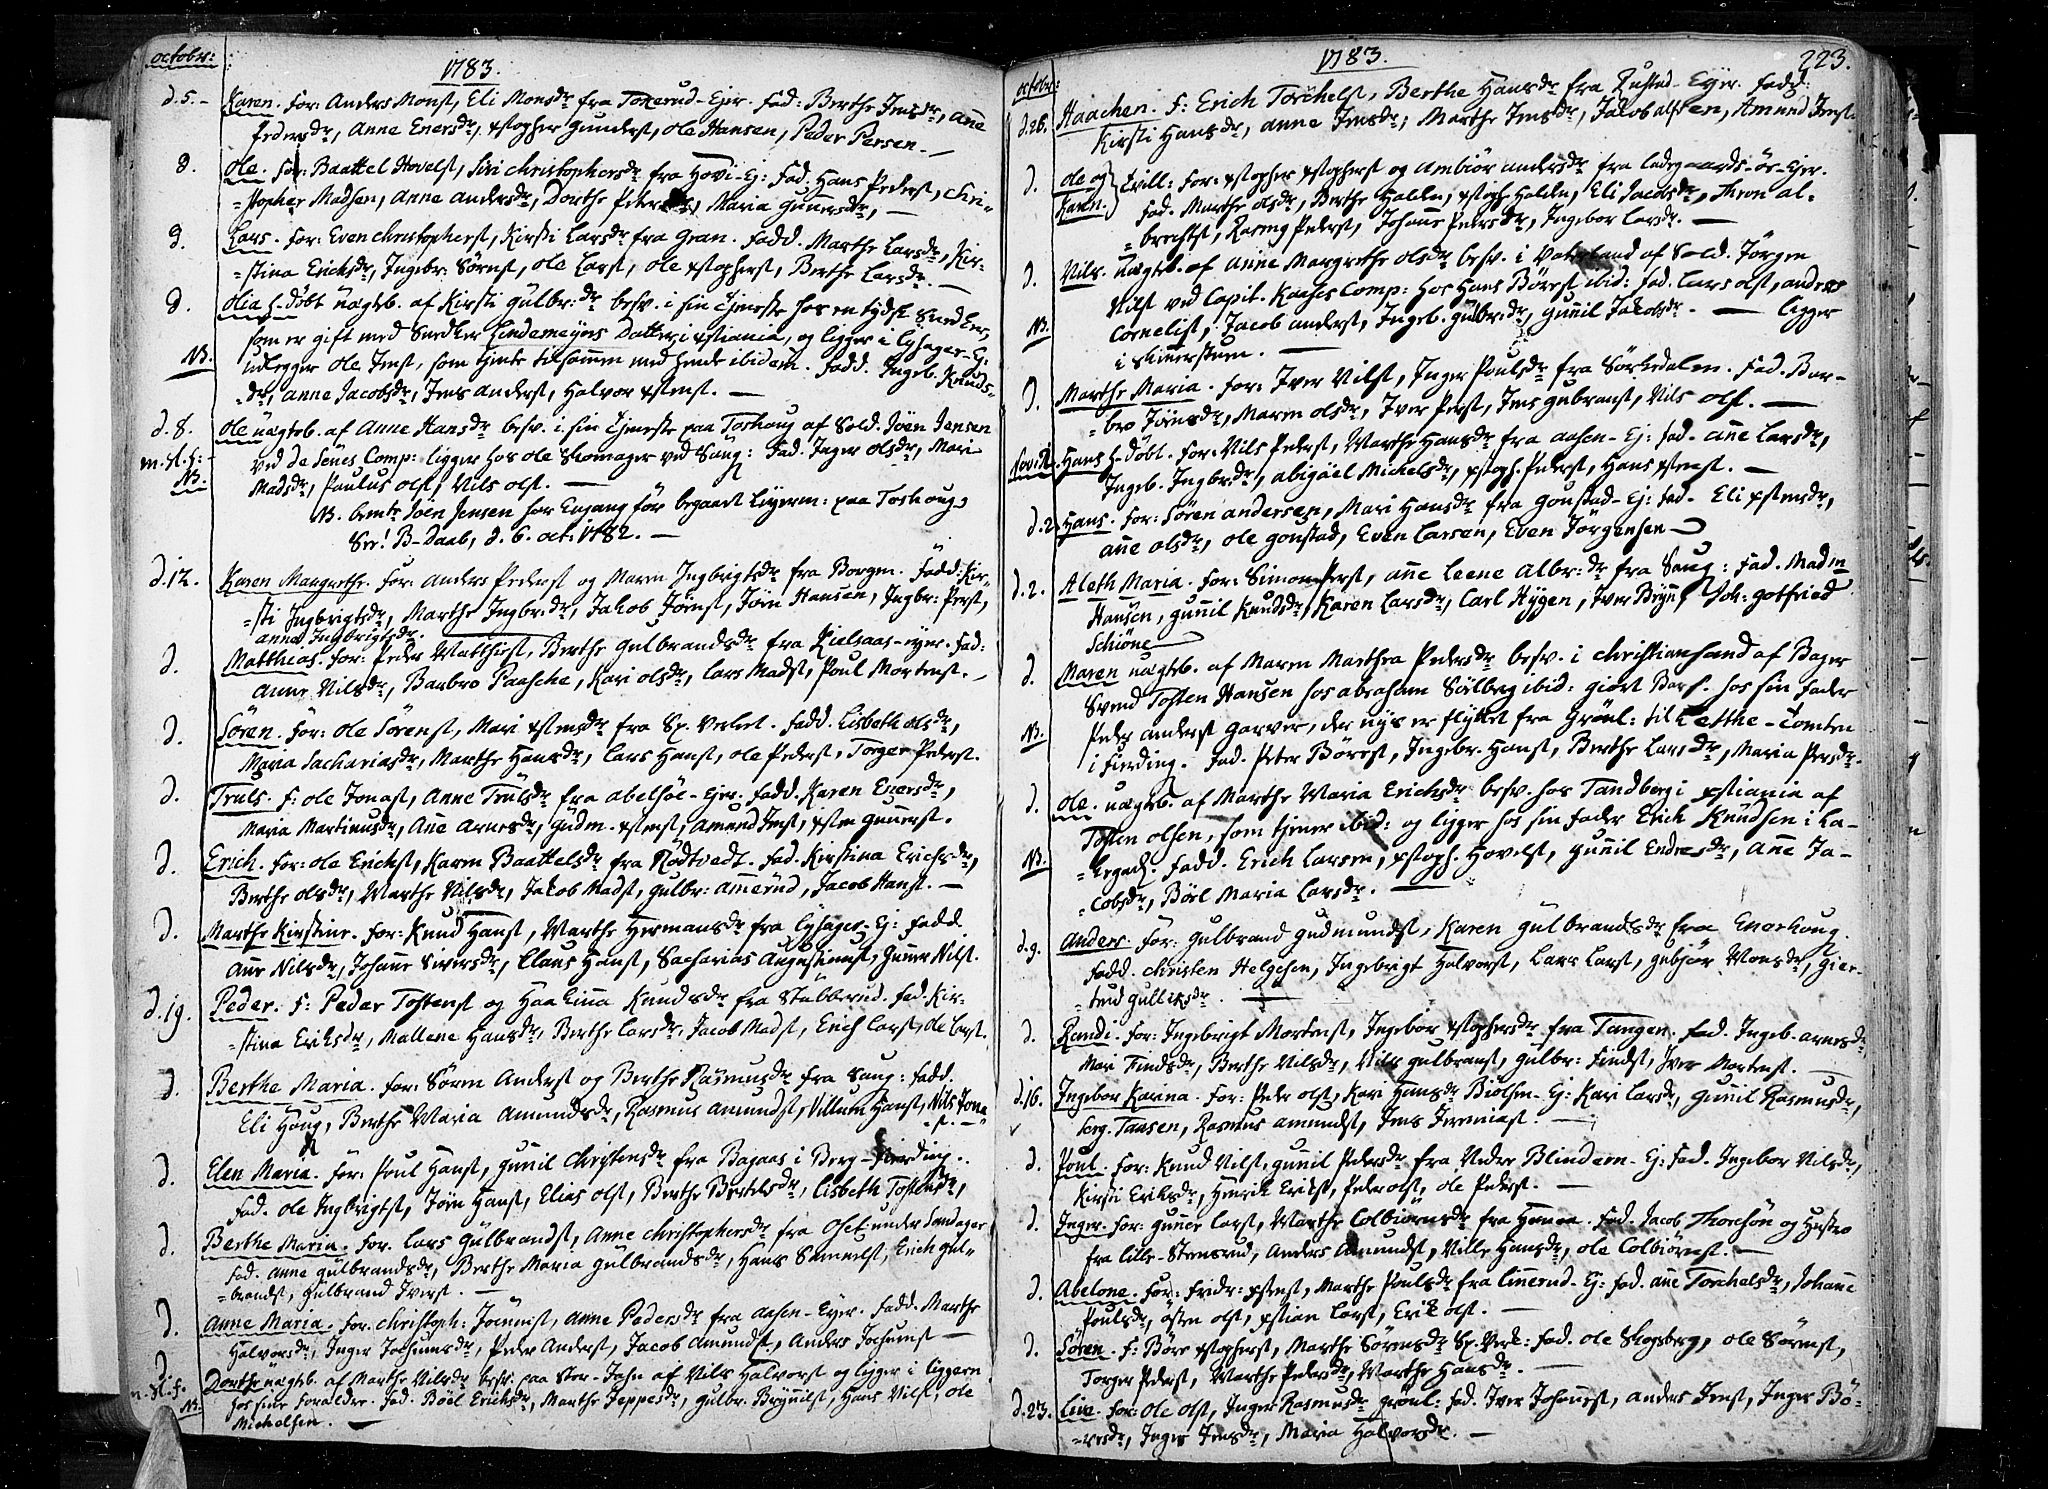 octobr:
1783.
d.5. Karen. For: Anders Monsl, Eli Monsdr fra Tokerud-Ejer. Fad: Berthe Jensdr, Anne
Pedersdr, Anne Enersdr, xstopher Gunersl, Ole Hansen, Peder Persen.
d. Ole. For: Baattel Hovelsl, Siri Christophersdr fra Hovi-Ej: Fad. Hans Pedersl, Chri-
=stopher Madsen, Anne Andersdr, Dorthe Pedersdr, Maria Gunersdr,
d. Lars. For: Even Christophersl, Kirsti Larsdr fra Gran. Fadd. Marthe Larsdr, Kir-
=stina Erichsdr, Ingebr: Sörensl, Ole Larsl, Ole xstophersl, Berthe Larsdr.
d. Olia h. döbt uægteb. af Kirsti Gulbr:dr besv. i sin tjeneste hos en tydsk Snedker,
som er gift med Snedker Lindemeyers Datter i xstiania, og ligger i Lysager-Ej:
NB. udlegger Ole Jensl, som tjente tilsammen med hende ibidem. Fadd. Ingeb. Knuds-
=dr, Anne Jacobsdr, Jens Andersl, Halvor xstensl.
d.8. Ole uægteb. af Anne Hansdr besv. i sin tjeneste paa Toshoug af Sold. Joen Jensen
m.sl.f: ved de Seues Comp: ligger hos Ole Skomager ved Saug: Fad. Inger Olsdr, Mari
NB. Madsdr, Paulus Olsl, Nils Olsl.
NB. bemte Joen Jensen har Engang för begaaet Leyerm: paa Toshoug
See! B-Daab, d. 6. oct. 1782.
d.12. Karen Margrethe. For: Anders Pedersl og Maren Ingbrigtsdr fra Borgen. Fadd: Kir-
=sti Ingbrigtsdr, Marthe Ingbr:dr, Jakob Jörnsl, Jörn Hansen, Ingbr: Persl,
anne Ingbrigtsdr.
d. Matthias. For: Peder Matthisl, Berthe Gulbrandsdr fra Kielsaas-ejer. Fad:
Anne Nilsdr, Barbro Paasche, Kari Olsdr, Lars Madsl, Poul Mortensl.
d. Sören. For: Ole Sörensl, Mari xstensdr fra Sp. Verket. Fadd. Lisbeth Olsdr,
Maria Sachariasdr, Marthe Hansdr, Lars Hansl, Ole Pedersl, Torger Pedersl.
d. Truls. F: Ole Jonasl, Anne Trulsdr fra Abelsöe-Ejer. Fadd. Karen Enersdr,
Maria Martinusdr, Ane Arnesdr, Gudm. xstensl, Amund Jensl, xsten Gunersl.
d. Erich. For: Ole Erichsl, Karen Baattelsdr fra Rödtvedt. Fad. Kirstina Erichsdr,
Berthe Olsdr, Marthe Nilsdr, Jakob Madsl, Gulbr: Amerud, Jacob Hansl.
d. Marthe Kirstine. For: Knud Hansl, Marthe Hermansdr fra Lysager-Ej: Fadd.
Ane Nilsdr, Johane Siversdr, Claus Hansl, Sacharias Augustinusl, Guner Nilsl.
d.19. Peder. F: Peder Tostensl og Haakina Knudsdr fra Stubberud. Fad. Kir-
=stina Eriksdr, Mallene Hansdr, Berthe Larsdr, Jacob Madsl, Erich Larsl, Ole Larsl.
d. Berthe Maria. For: Sören Andersl og Berthe Rasmusdr fra Saug: Fadd.
Eli Houg, Berthe Maria Amundsdr, Rasmus Amundsl, Villum Hansl, Nils Jona-
=sl.
d. Elen Maria. For: Poul Hansl, Gunil Christensdr fra Bagaas i Berg-Fierding.
Fad. Ole Ingbrigtsl, Jörn Hansl, Elias Olsl, Berthe Bertelsdr, Lisbeth Tostensdr,
d. Berthe Maria. For. Lars Gulbrandsl, Anne Christophersdr fra Oset under Sandager
Fad. Anne Gulbrandsdr, Berthe Maria Gulbrandsdr, Hans Samuelsl, Erich Gul=
=brandsl, Gulbrand Iversl.
d. Anne Maria. For. Christoph: Joenisl, Anne Pedersdr fra Aasen-Ejer. Fadd. Marthe
Halvorsdr, Inger Jochumsdr, Peder Andersl, Jacob Amundsl, Anders Jochumsl
d. Dorthe uægteb. af Marthe Nilsdr besv. paa Stor-Jahn af Nils Halvorsl og ligger i
m.sl.f. hos sine Forældre. Fad. Böel Erichsdr, Marthe Jeppesdr, Gulbr. Brynilsl, Hans Nilsl, Ole
NB. Michelsen.
octobr:
1783.
223.
d.26. Haachen. F: Erich Torchelsl, Berthe Hansdr fra Rustad-Ejer. Fadd:
Kirsti Hansdr, Anne Jensdr, Marthe Jensdr, Jakob Alfsen, Amund Jensl.
d. Ole og Karen. Tvill: For: xstopher xstophersl og Ambiör Andersdr fra Ladegaards-öe-Ejer.
Fad. Marthe Olsdr, Berthe Halden, xstoph. Halden, Eli Jacobsdr, Thron Al-
=brechtsl, Rasmus Pedersl, Johane Pedersdr, Ingebor Larsdr.
d. Nils. uægteb. af Anne Margrethe Olsdr besv. i Vaterland af Sold. Jörgen
Nilsl ved Capit. Kaases Comp: hos Hans Böresl ibid: Fad. Lars Olsl, Anders
NB. Cornelisl, Jacob Andersl, Ingeb. Gulbr:dr, Gunil Jakobsdr. ligger
i
d. Marthe Maria. For: Iver Nilsl, Inger Poulsdr fra Sörkedalen. Fad. Bar-
=bro Jörnsdr, Maren Olsdr, Iver Persl, Jens Gubransl, Nils Olsl.
Nov: Hans h. döbt. For: Nils Pedersl, Marthe Hansdr fra Aasen-Ej: Fad. Ane Larsdr,
Ingeb. Ingbr:dr, Abigael Michelsdr, xstoph. Pedersl, Hans xstensl.
d.2. Hans. For: Sören Andersen, Mari Hansdr fra Goustad-Ej: Fad. Eli xstensdr,
Ane Olsdr, Ole Gonstad, Even Larsen, Even Jörgensen
d.2. Aleth Maria. For: Simon Persl, Ane Leene Albr:dr fra Saug: Fad. Mad
Hansen, Gunil Knudsdr, Karen Larsdr, Carl Hygen, Iver Bryn, Joh: Gotfried
Schiöne
d. Maren uægteb. af Maren Marthea Pedersdr besv. i Christiansand af Bager
Svend Tosten Hansen hos Abraham Solberg ibid: giort Bars. hos sin Fader
NB. Peder Andersl Garver, der nys er flyttet fra Grönl: til Lethe-Tomten
i Fierding. Fad. Peter Böresl, Ingebr. Hansl, Berthe Larsdr, Maria Persdr.
d. Ole. uægteb. af Marthe Maria Erichsdr besv. hos Tandberg i xstiania af
Tosten Olsen, som tjener ibid: og ligger hos sin Fader Erich Knudsen i La-
NB. =kegad. Fadd. Erich Larsen, xstoph. Hovelsl, Gunil Endresdr, Ane Ja-
=cobsdr, Böel Maria Larsdr.
d.9. Anders. For: Gulbrand Gudmundsl, Karen Gulbrandsdr fra Enerhoug.
Fadd. Christen Helgesen, Ingebrigt Halvorsl, Lars Larsl, Gubjör Monsdr, Gier-
=trud Gulliksdr.
d. Randi. For: Ingebrigt Mortensl, Ingebor xstophersdr fra Tangen. Fad. Ingeb. Arnesdr
Mari Findsdr, Berthe Nilsdr, Nils Gulbransl, Gulbr: Findsl, Iver Mortensl.
d.16. Ingebor Karina. For: Peder Olsl, Kari Hansdr Biölsen-Ej: Kari Larsdr, Gunil Rasmusdr,
Jörg. Taasen, Rasmus Amundsl, Jens Jeremiasl.
d. Poul. For: Knud Nilsl, Gunil Pedersdr fra Nedre Blindern-Ej: Fad. Ingebor Nilsdr,
Kirsti Eriksdr, Henrik Eriksl, Peder Olsl, Ole Pedersl.
d. Inger. For: Guner Larsl, Marthe Colbiörnsdr fra Fad. Jacob Thoresön og Hustro
fra Lille-Stensrud, Anders Amundsl, Ville Hansdr, Ole Colbiörnsl.
d. Abelone. For: Fridr: xstensl, Marthe Poulsdr fra Linerud-Ej: Fad. Ane Torchelsdr, Johane
Poulsdr, Östen Olsl, xstian Larsl, Erik Olsl.
d. Sören. F: Böre xstophersl, Marthe Sörensdr Sp. Verk: Fad. Ole Skogsberg, Ole Sörensl,
Torger Pedersl, Marthe Pedersdr, Marthe Hansdr.
d.23. Live. For: Ole Olsl, Inger Rasmusdr Grönl: Fad. Iver Johanesl, Anders Jensl, Inger Bö-
=resdr, Inger Jensdr, Maria Halvorsdr.